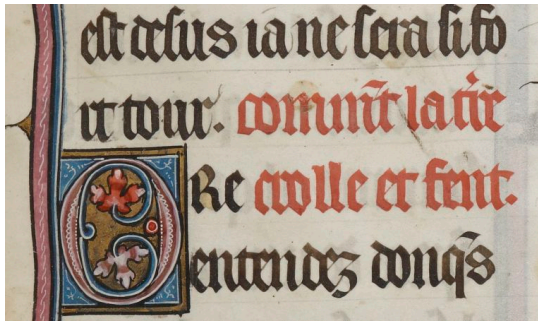 est desus ia ne sera si fo
rt tour. comm̃t la t're
ORe crolle et fent.
entendez donq̃s